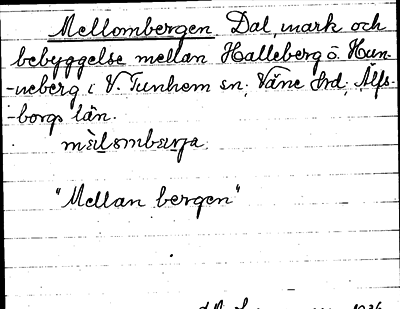 Mellombergen. Dal, mark och
bebyggelse mellan Halleberg o. Hun-
-neberg i V. Tunhem sn; Väne hrd; Älfs-
-borgs län.
"Mellan bergen"